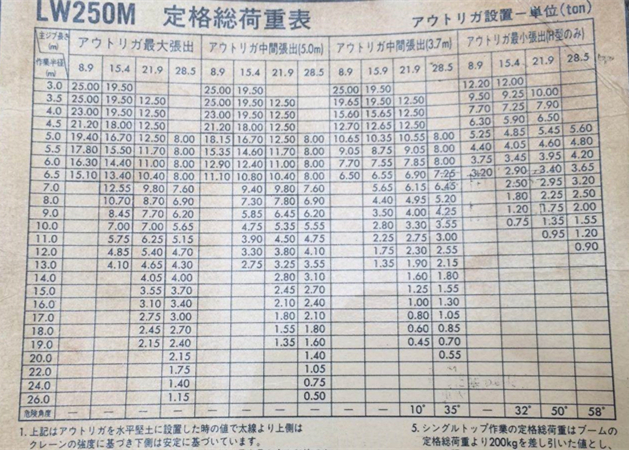 LW250M 定格総荷重表 アウトリガ設置一単位(ton)
主ジブ長さ(m) アウトリガ最大張出 アウトリガ中間張出(5.0m) アウトリガ中間張出(3.7m) アウトリガ最小張出(H型のみ)
作業半径(m) 8.9 15.4 21.9 28.5 8.9 15.4 21.9 28.5 8.9 15.9 21.9 28.5 8.9 15.4 21.9 28.5
3.0 25.00 19.50 25.00 19.50 25.00 19.50 12.20 12.00
3.5 25.00 19.50 12.50 25.00 19.50 12.50 19.65 19.50 12.50 9.50 9.25 10.00
4.0 23.00 19.50 12.50 23.00 19.50 12.50 15.60 15.65 12.50 7.70 7.25 7.90
4.5 21.20 18.00 12.50 21.20 18.00 12.50 12.70 12.65 12.50 6.30 5.90 6.50
5.0 19.40 16.70 12.50 8.00 18.15 16.70 12.50 8.00 10.65 10.35 10.55 8.00 5.25 4.85 5.45 5.60
5.5 17.80 15.50 11.70 8.00 15.35 14.60 11.70 8.00 9.05 8.75 9.05 8.00 4.40 4.05 4.60 4.80
6.0 16.30 14.40 11.00 8.00 12.90 12.40 11.00 8.00 7.70 7.55 7.85 8.00 3.75 3.45 3.95 4.20
6.5 15.10 13.40 10.40 8.00 11.10 10.80 10.40 8.00 6.50 6.55 6.90 7.25 3.20 2.90 3.40 3.65
7.0 12.55 9.80 7.60 9.40 9.80 7.60 5.65 6.15 6.45 2.50 2.95 3.20
8.0 10.70 8.70 6.90 7.30 7.80 6.90 4.40 4.95 5.20 1.80 2.25 2.50
9.0 8.45 7.70 6.20 5.85 6.45 6.20 3.50 4.00 4.25 1.20 1.75 2.00
10.0 7.00 7.00 5.65 4.75 5.35 5.55 2.80 3.30 3.55 0.75 1.35 1.55
11.0 5.75 6.25 5.15 3.90 4.50 4.75 2.25 2.75 3.00 0.95 1.20
12.0 4.85 5.40 4.70 3.30 3.80 4.10 1.75 2.30 2.55 0.90
13.0 4.10 4.65 4.30 2.75 3.25 3.55 1.35 1.90 2.15
14.0 4.05 4.00 2.80 3.10 1.60 1.80
15.0 3.55 3.70 2.45 2.70 1.25 1.55
16.0 3.10 3.40 2.10 2.40 1.00 1.30
17.0 2.75 3.00 1.80 2.10 0.80 1.05
18.0 2.45 2.70 1.55 1.80 0.60 0.85
19.0 2.15 2.40 1.35 1.60 0.45 0.70
20.0 2.15 1.40 0.55
22.0 1.75 1.05
24.0 1.40 0.75
26.0 1.15 0.50
危険角度 — — — — — — — — — — 10° 35° — 32° 50° 58°
1. 上記はアウトリガを水平堅土に設置した時の値で太線より上側は
クレーンの強度に基づき下側は安定に基づいています。
5. シングルトップ作業の定格総荷重はブームの
定格総荷重より200kgを差し引いた値とし、